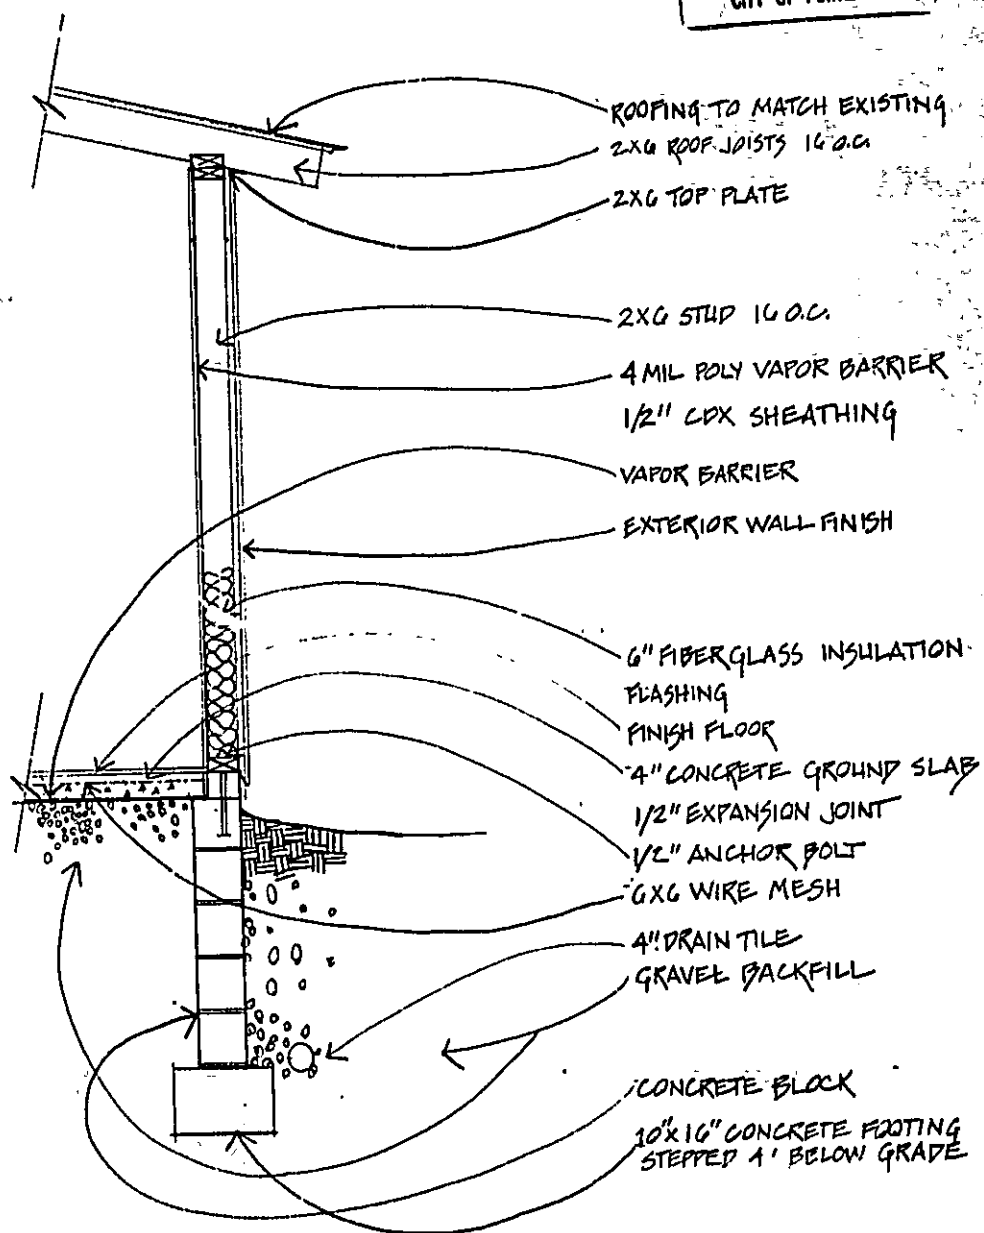 CITY OF
ROOFING TO MATCH EXISTING
2X6 ROOF JOISTS 16 O.C.
2X6 TOP PLATE
2X6 STUD 16 O.C.
4 MIL POLY VAPOR BARRIER
1/2" CDX SHEATHING
VAPOR BARRIER
EXTERIOR WALL FINISH
6" FIBERGLASS INSULATION
FLASHING
FINISH FLOOR
4" CONCRETE GROUND SLAB
1/2" EXPANSION JOINT
1/2" ANCHOR BOLT
6X6 WIRE MESH
4" DRAIN TILE
GRAVEL BACKFILL
CONCRETE BLOCK
10"X16" CONCRETE FOOTING
STEPPED 4' BELOW GRADE